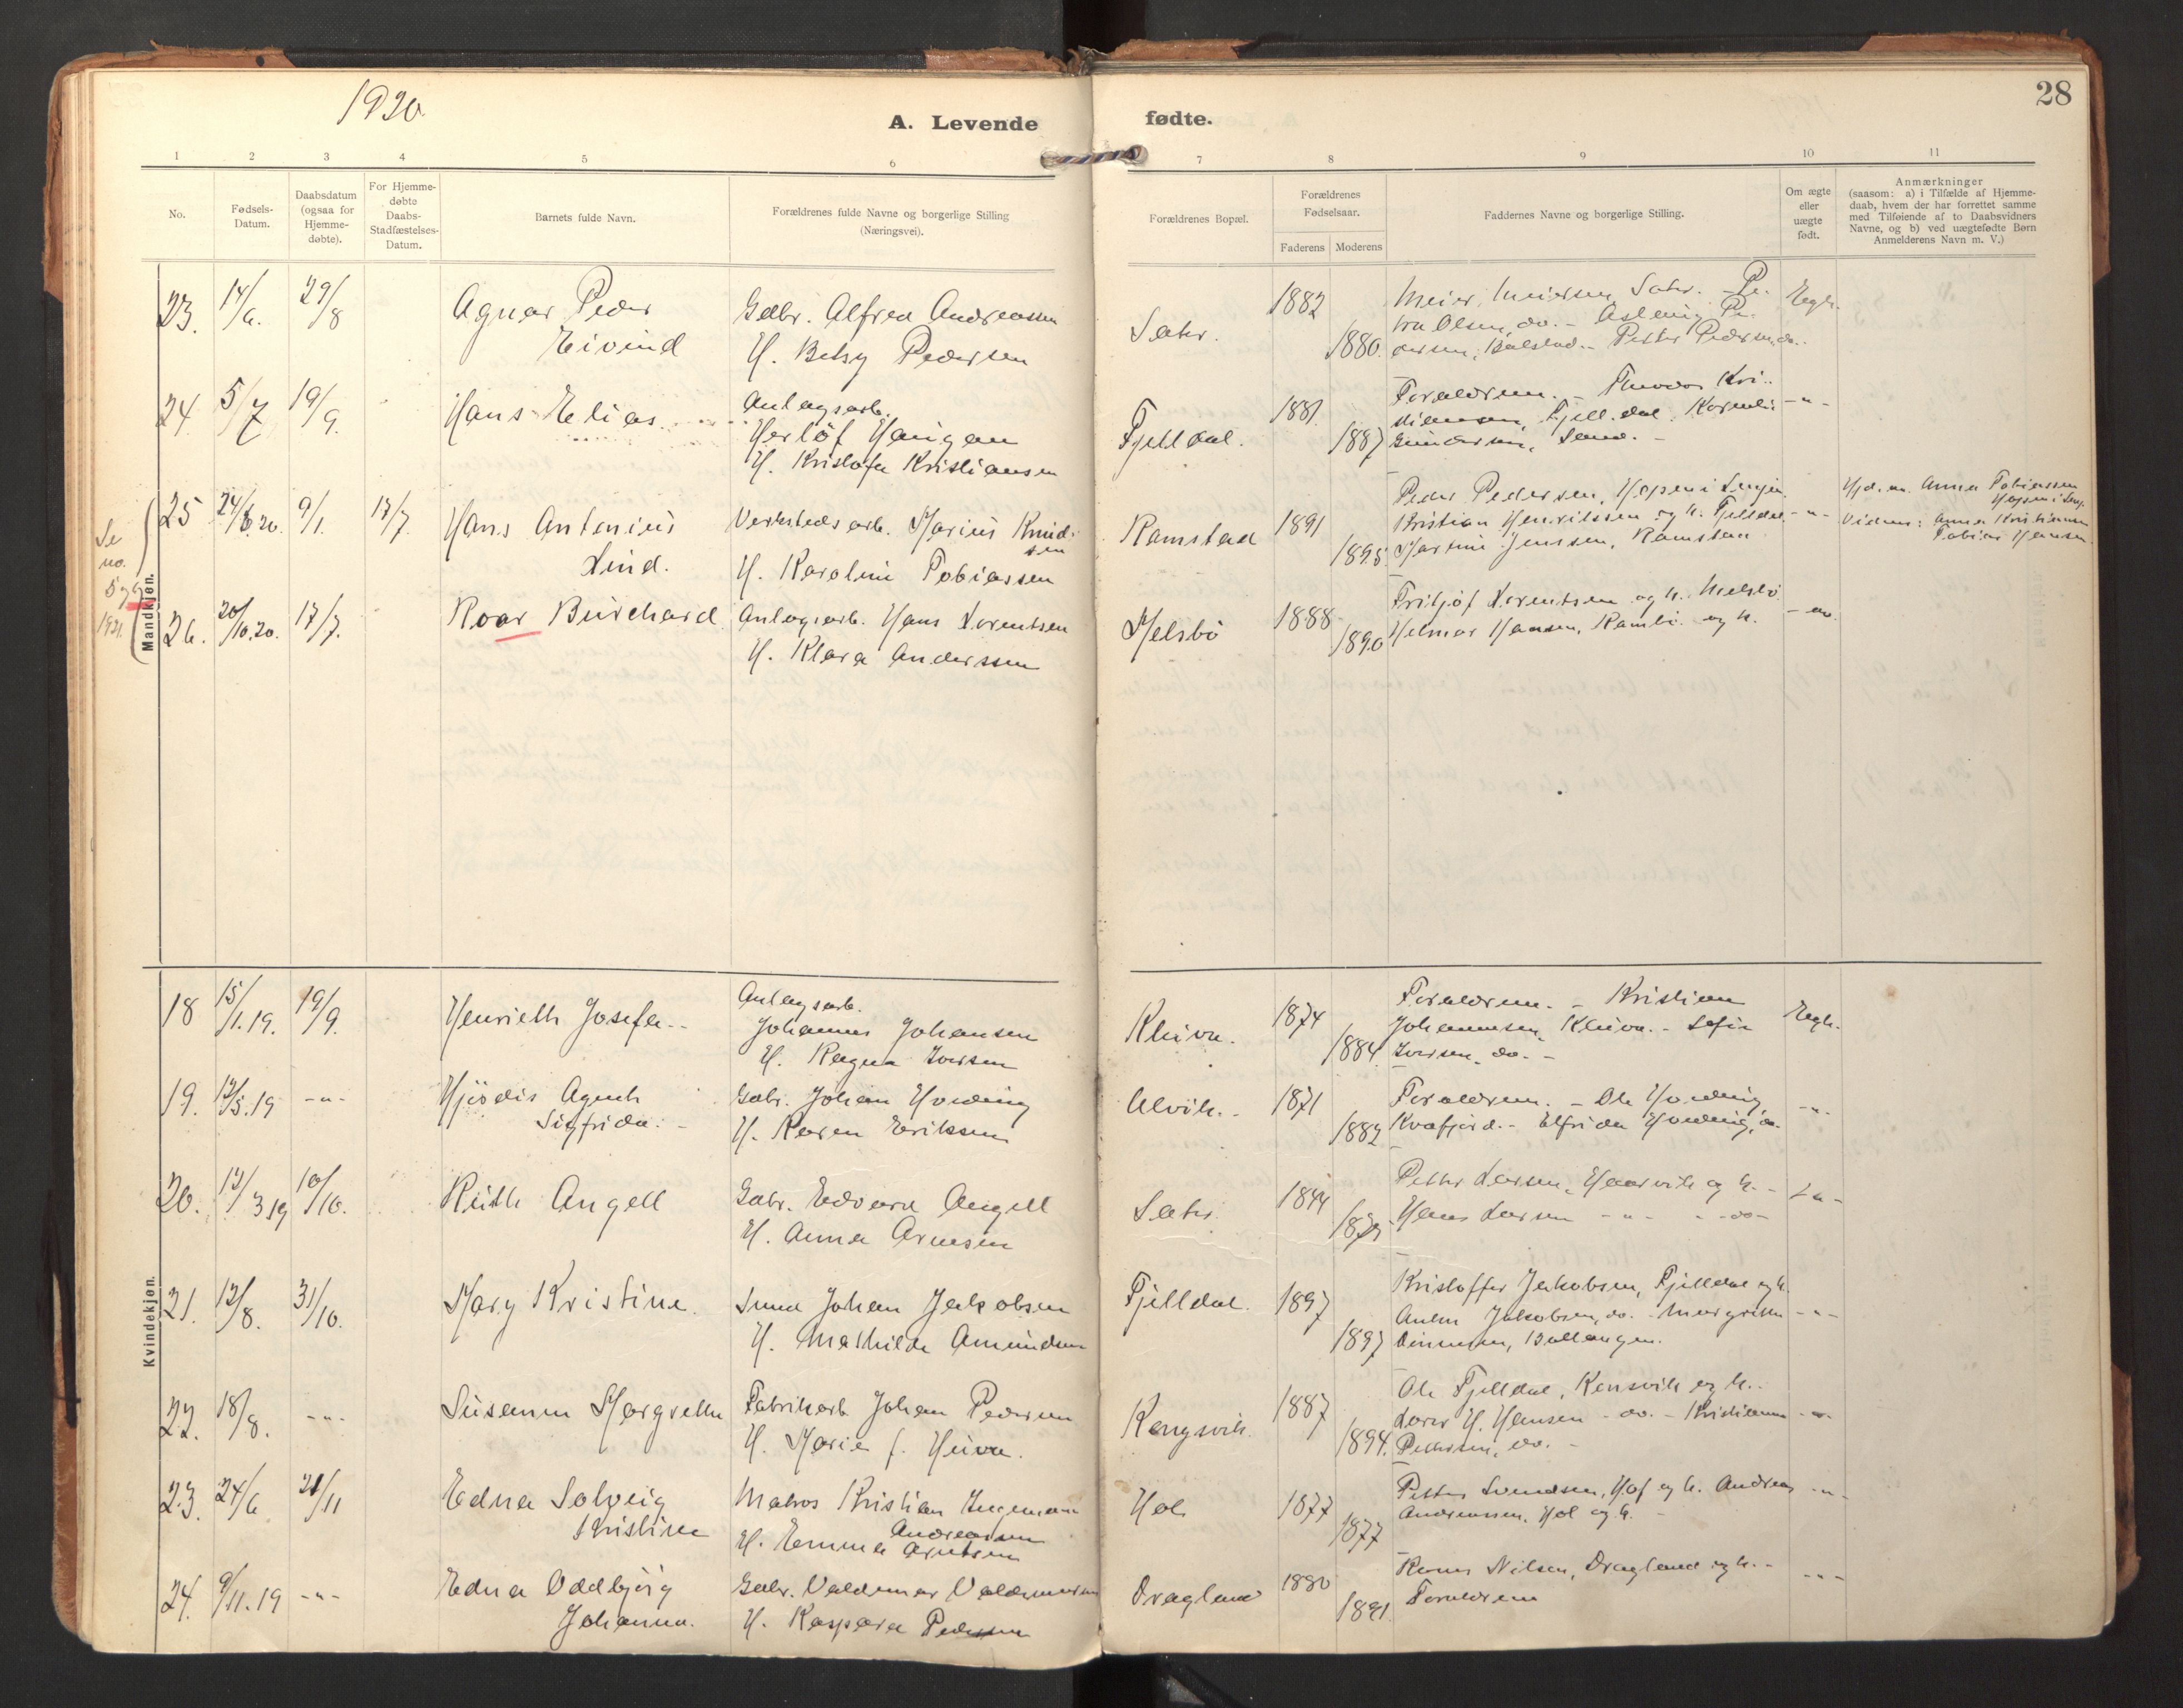 1920
28
A. Levende fødte.
1 2 3 4 5 6 7 8 9 10 11
No.
Fødsels-
Datum.
Daabsdatum
(ogsaa for
Hjemme-
døbte).
For Hjemme-
døbte
Daabs-
Stadfæstelses-
Datum.
Barnets fulde Navn.
Forældrenes fulde Navne og borgerlige Stilling
(Næringsvei).
Forældrenes Bopæl.
Forældrenes
Fødselsaar.
Faderens Moderens
Faddernes Navne og borgerlige Stilling.
Om ægte
eller
uægte
født.
Anmærkninger
(saasom: a) i Tilfælde af Hjemme-
daab, hvem der har forrettet samme
med Tilføiende af to Daabsvidners
Navne, og b) ved uægtefødte Børn
Anmelderens Navn m. V.)
Mandkjøn.
Se
no.
5 og 6
1921.
23. 14/6. 29/8
Agnar Peder
Eivind
Gdbr. Alfred Andreassen
H. Betsy Pedersen
Sater.
1882
1880.
Meier Meiersen, Sater. - Pe-
tra Olsen, do. - Aslaug Pe-
dersen, Balstad. - Petter Pedersen, do.
Egte.
24. 5/7 19/9.
Hans Elias
Anlagsarb.
Herlöf Haugan
H. Kristofa Kristiansen
Fjelldal.
1881.
1887
Foraldrene. - Theodor Kri-
stiansen, Fjelldal. Kornelia
Gundersen, Sand. -
-"-
25 24/8.20. 9/1. 17/7.
Hans Antonius
Lind.
Verkstedsarb. Marius Knud-
sen
H. Karoline Tobiassen
Ramstad
1891
1895.
Peder Pedersen, Hopen i Lenvik.
Kristian Henriksen og h. Fjelldal
Martine Jenssen, Ramstad
-"-
Hjd. av Anna Tobiassen
Vidner: Anna Kristiansen
Tobias Hansen.
26. 20/10.20. 17/7.
Roar Burchard
Anlagsarb. Hans Lorentsen
H. Klara Anderssen
Melsbö
1888
1890
Fritjof Lorentsen og h. Melsbö
Helmar Hansen, Rambö. og h.
-"-
Kvindekjøn.
18 15/1.19. 19/9.
Henriette Josefa
Anlagsarb.
Johannes Johansen
H. Ragna Iversen
Kleiva.
1874
1884.
Foraldrene. - Kristian
Johannesen, Kleiva. - Sofie
Iversen, do. -
Egte.
19. 12/5.19 -"-
Hjördis Agnete
Sigfrida.
Gdbr. Johan Hovding
H. Karen Eriksen
Alvik.
1871
1882
Foraldrene. - Ole Hovding,
Kvafjord. - Elfrida Hovding, do.
-"-
20. 12/3 19 10/10.
Ruth Angell
Gdbr. Edvard Angell
H. Anna Arnesen
Sater.
1844
1875
Petter Larsen, Haarvik og h. -
Hans Larsen -"- -do-
-"-
21. 12/8. 31/10.
Mary Kristine.
Smed Johan Jakobsen
H. Mathilde Amundsen
Fjelldal.
1897
1897
Kristoffer Jakobsen, Fjelldal og h.
Anton Jakobsen, do. - Margrethe
Ballangen.
-"-
22. 18/8. -"-
Susanna Margrethe
Fabrikarb. Johan Pedersen
H. Marie f. Heiva.
Kongsvik.
1887
1894.
Ole Fjelldal, Kongsvik og h.
Lars H. Hansen - do. - Kristianna
Pedersen, do. -
-"-
23. 24/6 21/11
Edna Solveig
Kristine
Matros Kristian Ingeman
Andreassen
H. Emma Arntsen
Hol
1877
1877
Petter Svendsen, Hof og h. Andreas
Andreassen, Hol og h. -
-"-
24. 9/11.19 -"-
Edna Oddbjörg
Johanna.
Gdbr. Valdemar Valdemarsen
H. Kaspara Pedersen
Dragland
1880
1891.
Nilsen, Dragland og h. -
Foraldrene
-"-